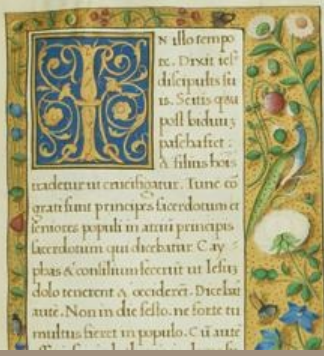 IN illo tempo
re. Dixit ies
discipulis su
is. Scitis quia
post biduuʒ
pascha fiet:
& filius hois
tradetur ut crucifigatur. Tunc cō
gregati sunt principes sacerdotum et
seniores populi in atriū principis
sacerdotum qui dicebatur Cay
phas & consilium fecerūt ut Iesuʒ
dolo tenerent & occiderēt. Dicebāt
autē. Non in die festo. ne forte tu
multus fieret in populo. Cū autē